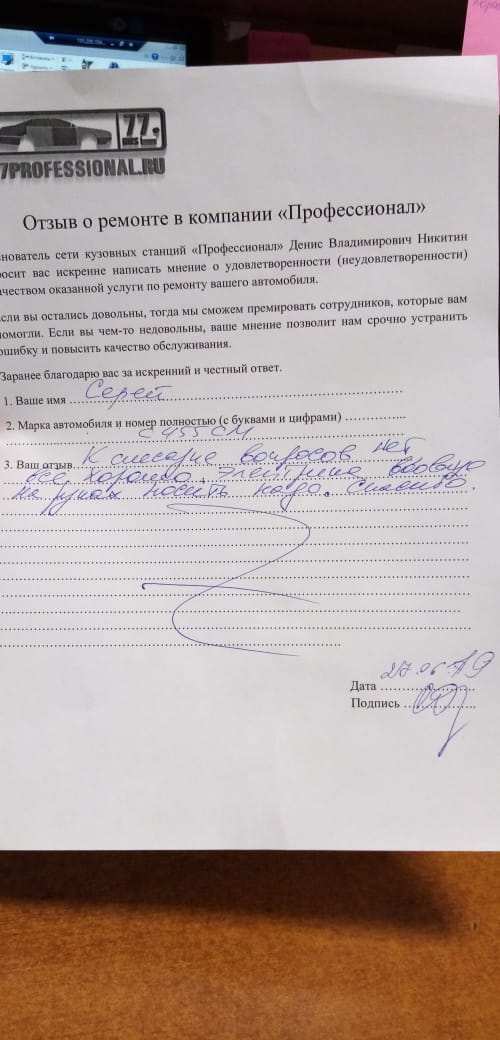 77.
7PROFESSIONAL.RU
Отзыв о ремонте в компании «Профессионал»
снователь сети кузовных станций «Профессионал» Денис Владимирович Никитин
осит вас искренне написать мнение о удовлетворенности (неудовлетворенности)
ачеством оказанной услуги по ремонту вашего автомобиля.
сли вы остались довольны, тогда мы сможем премировать сотрудников, которые вам
омогли. Если вы чем-то недовольны, ваше мнение позволит нам срочно устранить
ошибку и повысить качество обслуживания.
Заранее благодарю вас за искренний и честный ответ.
1. Ваше имя Сергей
2. Марка автомобиля и номер полностью (с буквами и цифрами)
С 455 СМ
3. Ваш отзыв К слесарю вопросов нет
все хорошо, электрика вообще
на руках носить надо. Спасибо.
27.06.19
Дата
Подпись